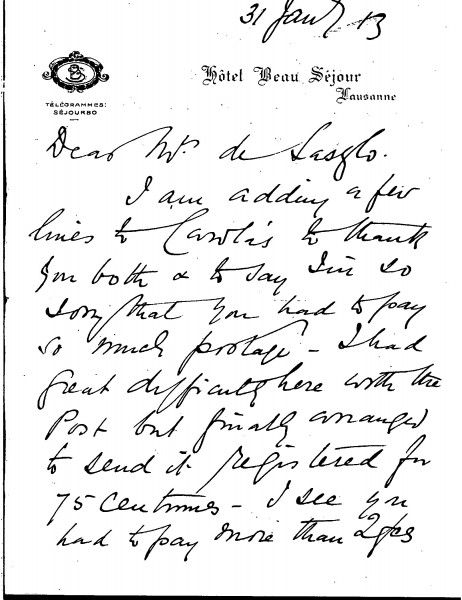 31 Jan 13
Hôtel Beau Séjour
Lausanne
TÉLÉGRAMMES:
SÉJOURBO
Dear Mrs de Laszlo.
I am adding a few
lines to Carola's to thank
you both & to say I'm so
sorry that you had to pay
so much postage - I had
great difficulty here with the
Post but finally arranged
to send it registered for
75 centimes - I see you
had to pay more than 2